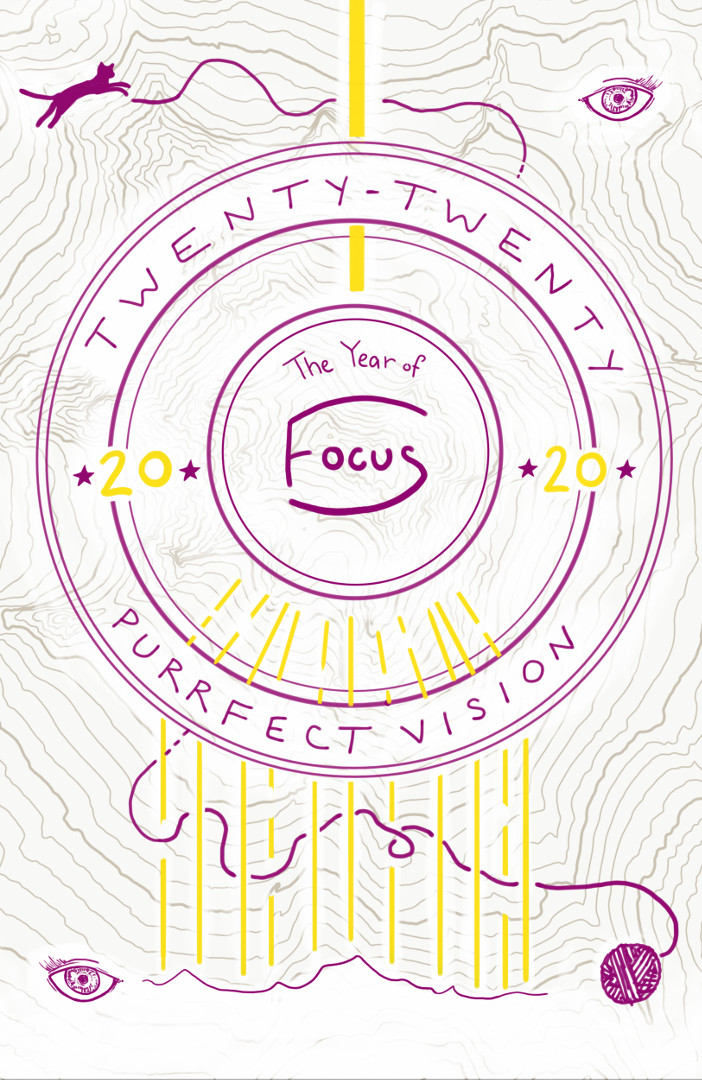 TWENTY-TWENTY
The Year of
Focus
20 20
PURRFECT VISION